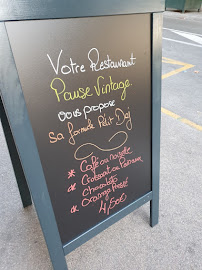 Votre Restaurant
Pause Vintage
vous propose
sa formule Petit Dej
* Café ou noisette
* Croissant ou Pain au
chocolat
* Orange pressé
4,50€